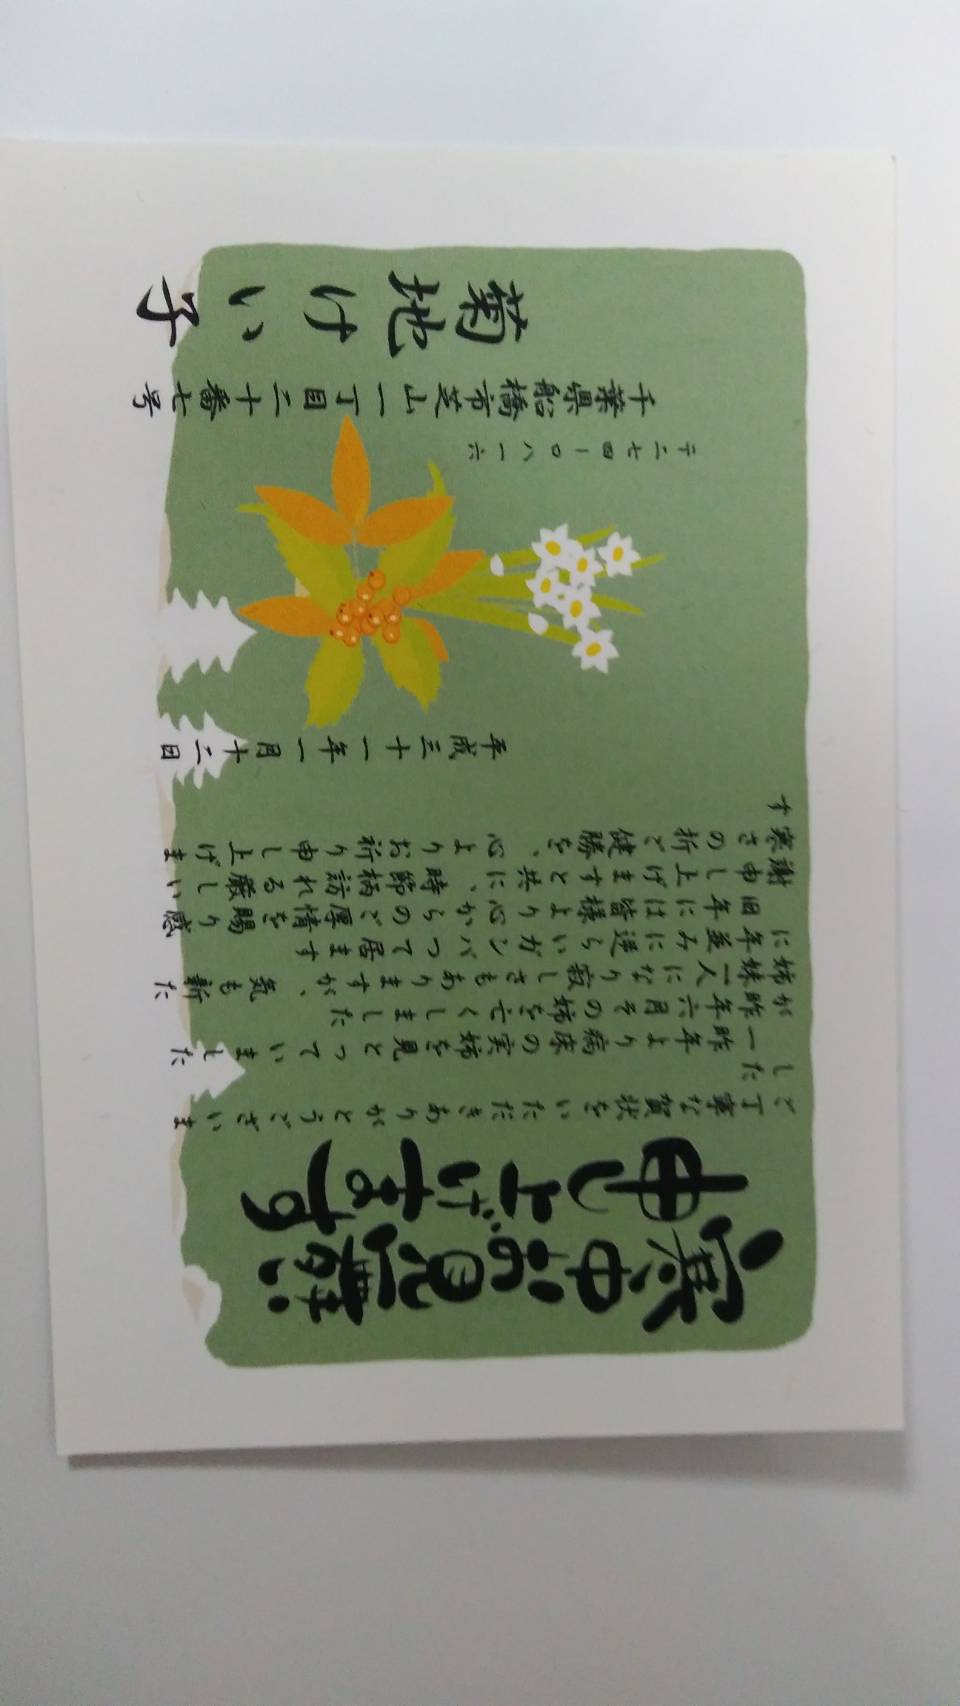 寒中お見舞い
申し上げます
ご丁寧な賀状をいただきありがとうございま
した
一昨年より病床の実姉を見とっていました
が昨年六月その姉を亡くしました
姉妹一人になり寂しさもありますが、気も新た
に年並みに逆らいガンバつて居ます
旧年には皆様より心からのご厚情を賜り感
謝申し上げますと共に、時節柄訪れる厳しい
寒さの折ご健勝を、心よりお祈り申し上げま
す
平成三十一年一月十二日
〒二七四ー〇八一六
千葉県船橋市芝山一丁目二十番七号
菊地けい子